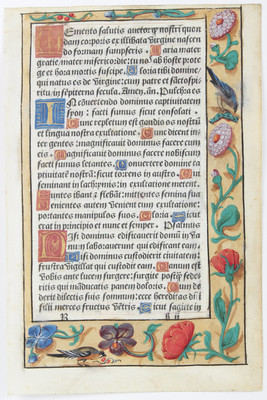 Memento salutis auctor q nostri quon
dam corporis ex illibata virgine nascen
do formam sumpseris. Maria mater
gratie/ mater misericordie: tu nos ab hoste prote
ge et hora mortis suscipe. Gloria tibi domine/
qui natus es de virgine: cum patre et sancto spi
ritu/ in sempiterna secula. Amen. an. Pulchra es
In convertendo dominus captivitatem
syon: facti sumus sicut consolati
Tunc repletum est gaudio os nostrum
et lingua nostra exultatione. Tunc dicent in
ter gentes: magnificavit dominus facere cum
eis. Magnificavit dominus facere nobiscum:
facti sumus letantes. Converte domine ca
ptivitatem nostram: sicut torrens in austro. Qui
seminant in lachrymis: in exultatione metent.
Euntes ibant et flebant: mittentes semina sua
venientes autem venient cum exultatione:
portantes manipulos suos. Gloria. Sicut
erat in principio et nunc et semper. Psalmus
Nisi dominus edificaverit domum in va
num laboraverunt qui edificant eam.
Nisi dominus custodierit civitatem:
frustra vigilat qui custodit eam. Vanum est
vobis ante lucem surgere: surgite postquam sede
ritis qui manducatis panem doloris. Cum de
derit dilectis suis somnum: ecce hereditas domini
filii merces fructus ventris. Sicut sagitte in